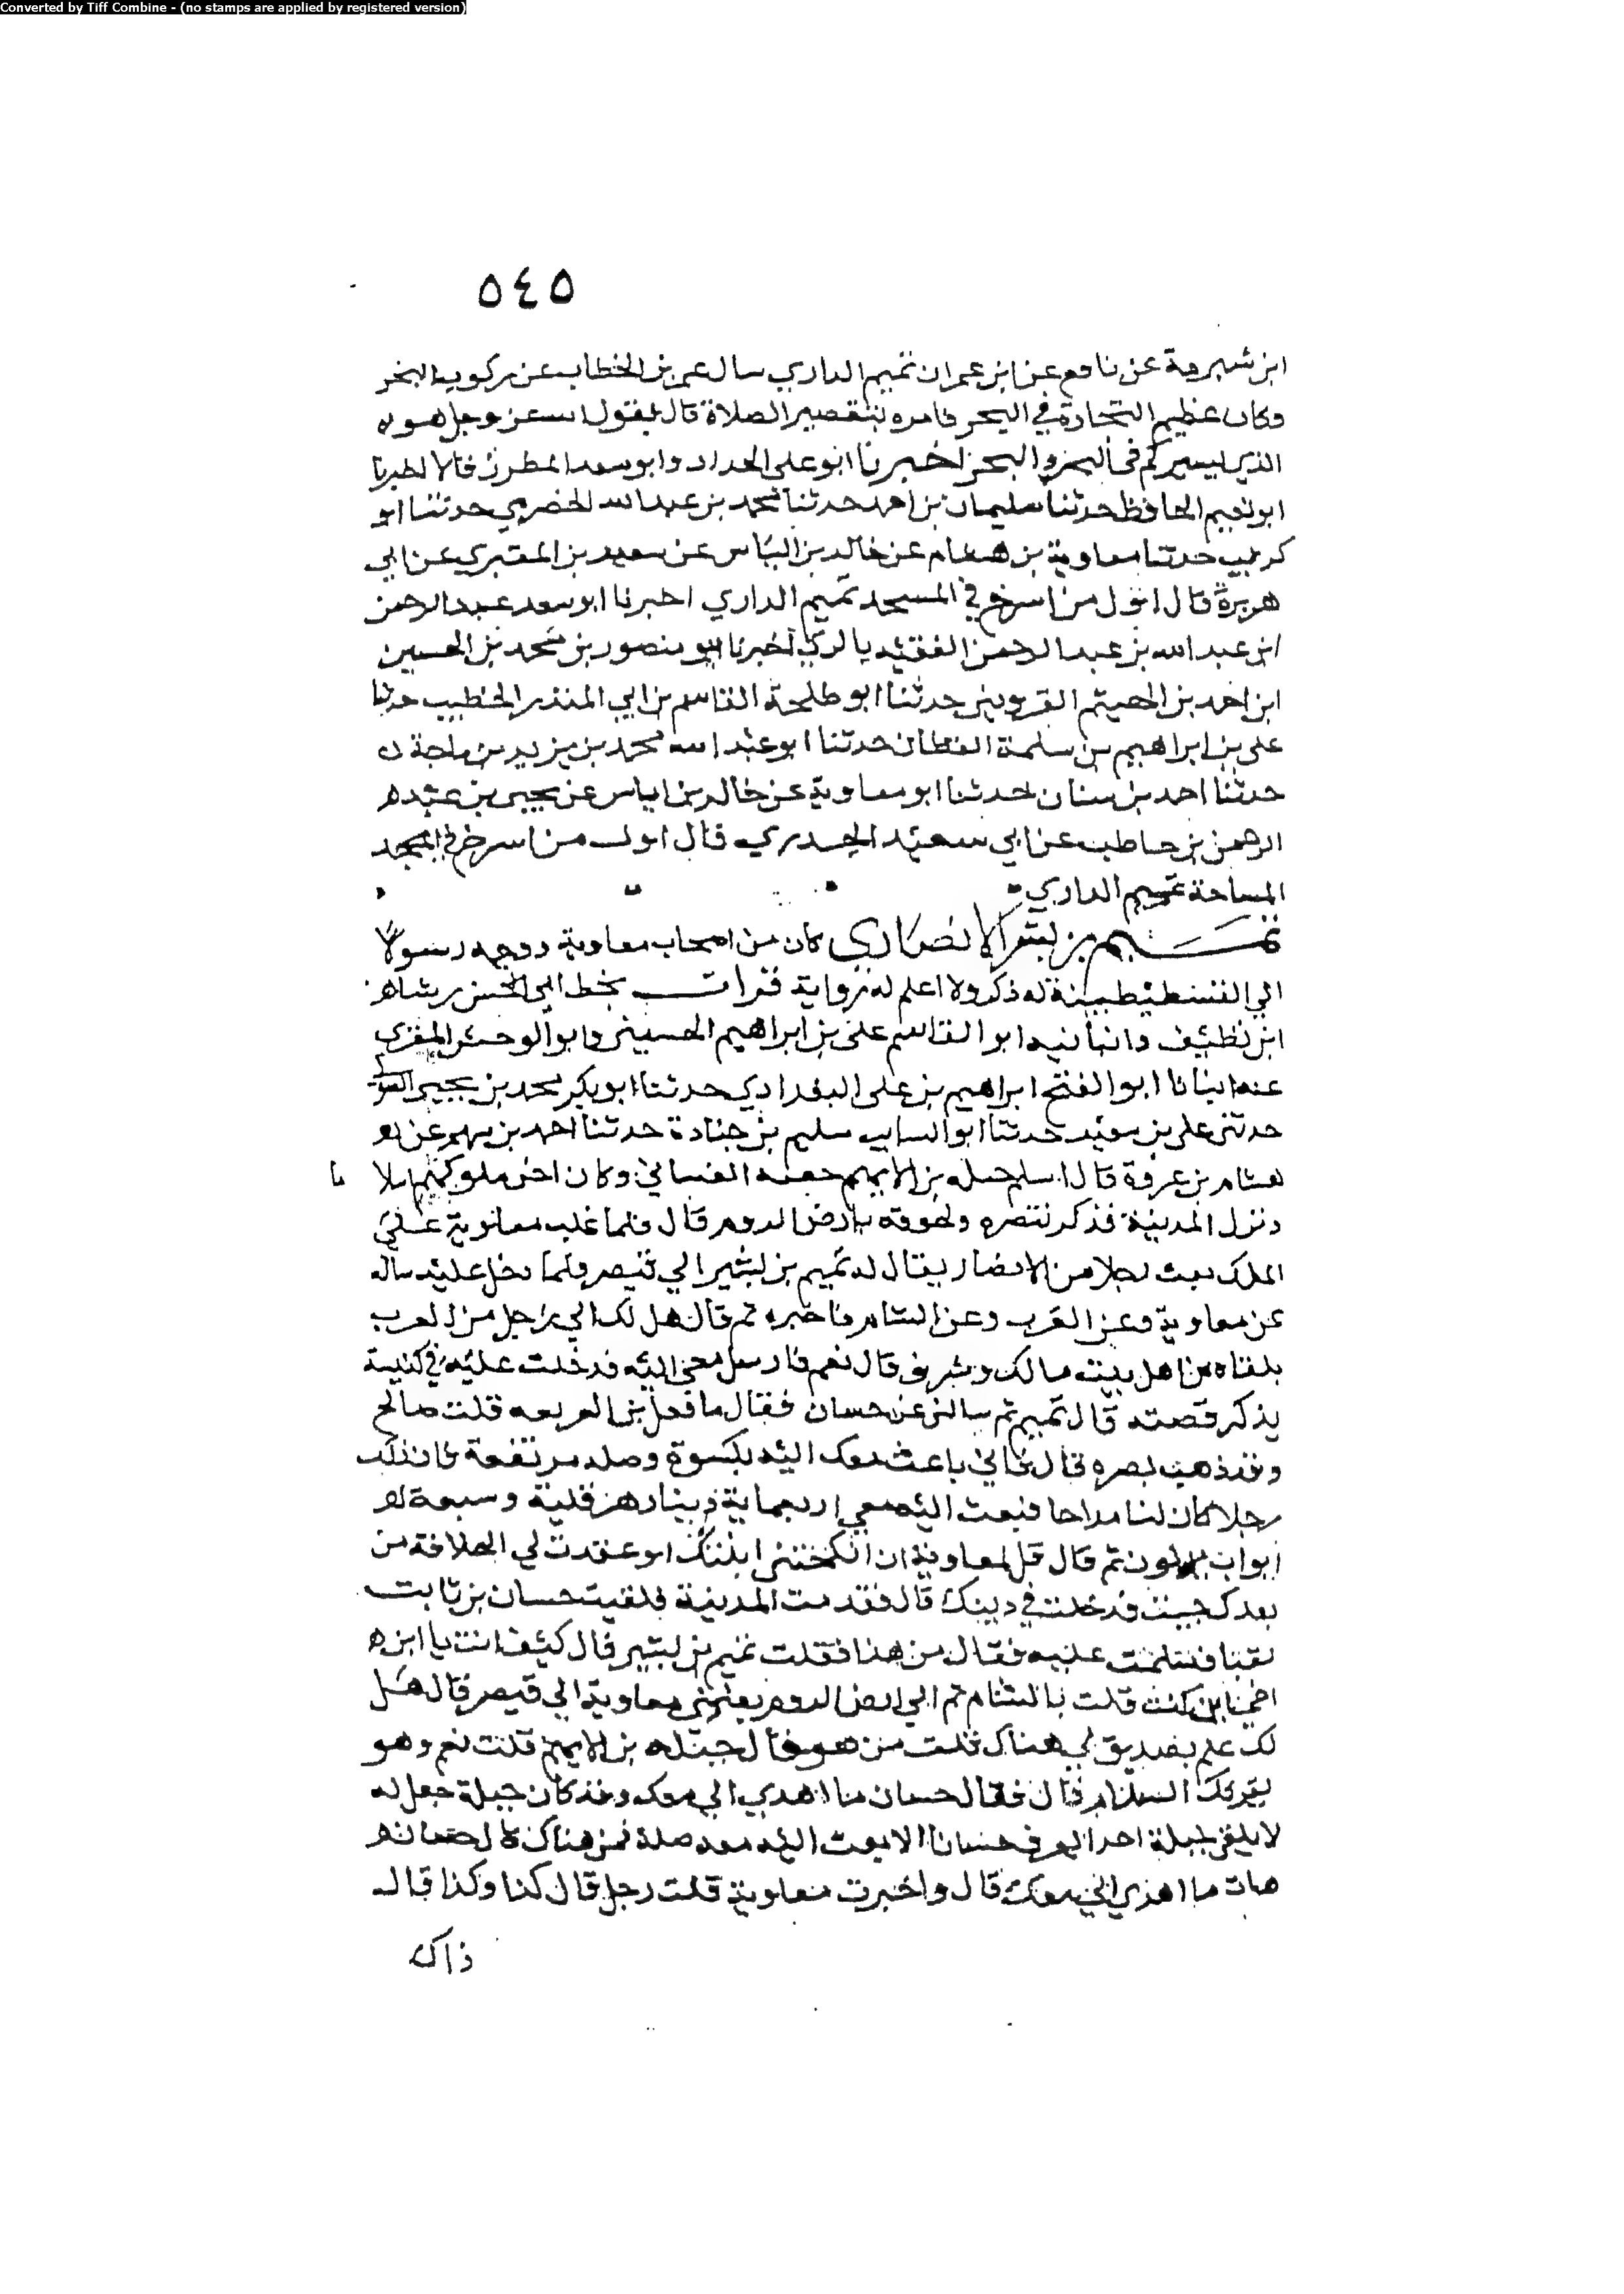 Converted by Tiff Combine - (no stamps are applied by registered version)
٥٤٥
ابن شبرمة عن نافع عن ابن عمر ان تميم الداري سال عمر بن الخطاب عن ركوب البحر
وكان عظيم التجارة في البحر فامره بتقصير الصلاة قال يقول الله عز وجل هو
الذي يسيركم في البر والبحر اخبرنا ابو علي الحداد وابو سعد المطرز قالا اخبرنا
ابو نعيم الحافظ حدثنا سليمان بن احمد حدثنا محمد بن عبد الله الحضرمي حدثنا ابو
كريب حدثنا معاوية بن هشام عن خالد بن الياس عن سعيد بن المقبري عن ابي
هريرة قال اول من اسرج في المسجد تميم الداري اخبرنا ابو سعد عبد الرحمن
ابن عبد الله بن عبد الرحمن الفقيه بالري اخبرنا ابو منصور بن محمد بن الحسين
ابن احمد بن الهيثم القزويني حدثنا ابو طلحة القاسم بن ابي المنذر الخطيب حدثنا
علي بن ابراهيم بن سلمة القطان حدثنا ابو عبد الله محمد بن يزيد بن ماجة
حدثنا احمد بن سنان حدثنا ابو معاوية عن خالد بن اياس عن يحيى بن عبد
الرحمن بن حاطب عن ابي سعيد الخدري قال اول من اسرج في المسجد
تميم الداري
تميم بن بشر الانصاري كان من اصحاب معاوية ووجهه رسولا
الي القسطنطينية له ذكر ولا اعلم له رواية قرات بخط ابي الحسن رشا
ابن نظيف وانبانيه ابو القاسم علي بن ابراهيم الحسيني وابو الوحش المقري
عنه انبانا ابو الفتح ابراهيم بن علي البغدادي حدثنا ابو بكر محمد بن يحيى
حدثني علي بن سعيد حدثنا ابو السايب سليم بن جنادة حدثنا احمد بن بهم عن
هشام بن عروة قال اسلم جبلة بن الايهم الغساني وكان اخر ملوكهم
ونزل المدينة فذكر تنصره ولحوقه بارض الروم قال فلما غلب معاوية علي
الملك بعث رجلا من الانصار يقال له تميم بن بشير الي قيصر فلما دخل عليه ساله
عن معاوية وعن العرب وعن الشام فاخبره ثم قال هل لك الي رجل من العرب
بلقاه من اهل بيت مالك وشرف قال نعم فارسل معي اليه فدخلت عليه في كنيسة
يذكر قصته قال تميم ثم سالني عن حسان فقال ما فعل بن الفريعة قلت صالح
وقد ذهب بصره قال فاني باعث معك اليه بكسوة وصله فان ذلك
رجلا كان لنا مداحا فبعث اليه معي اربعماية دينار هرقلية وسبعة
ابواب ثم قال قل لمعاوية ان انكحتني ابنتك او عقدت لي الخلافة من
بعدك جيت فدخلت في دينك قال فقدمت المدينة فلقيت حسان بن ثابت
فسلمت عليه فقال من هذا فقلت تميم بن بشير قال كيف انت يا ابن
اين كنت قلت بالشام ثم الي ارض الروم بعثني معاوية الي قيصر قال هل
لك علم بصديق لي هناك قلت من هو قال جبلة بن الايهم قلت نعم وهو
يقريك السلام قال فقال حسان ما اهدي الي معك وقد كان جبلة جعل له
لا يلقي جبلة احدا يعرف حسانا الا بعث اليه معه صلة فمن هناك قال حسان
هات ما اهدي الي معك قال واخبرت معاوية قلت رجل قال كذا وكذا قال
ذاك